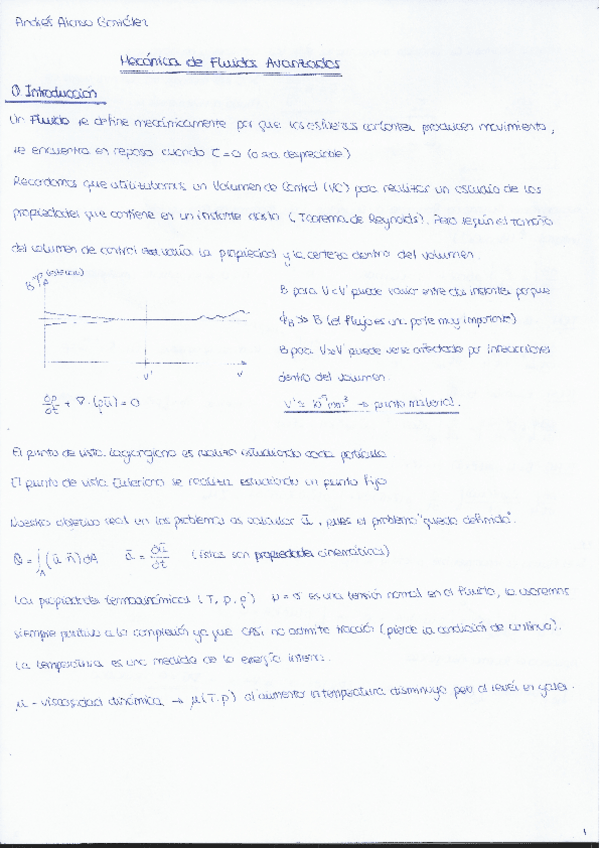 Andrés Alonso González
Mecánica de Fluidos Avanzados
① Introducción
Un Fluido se define mecánicamente por que los esfuerzos cortantes producen movimiento,
se encuentra en reposo cuando τ=0 (o sea despreciable)
Recordamos que utilizábamos un Volumen de Control (VC) para realizar un estudio de las
propiedades que contiene en un instante dado (Teorema de Reynolds). Pero según el tamaño
del volumen de control variaría la propiedad y la certeza dentro del volumen.
B
V'
V
B para V<V' puede variar entre dos instantes porque
ϕ_B >> B (el flujo es una parte muy importante)
B para V>V' puede verse afectada por interacciones
dentro del volumen.
V' ≈ mm³ → punto material.
∂ρ/∂t + ∇·(ρū) = 0
El punto de vista Lagrangiano es realizar estudiando cada partícula.
El punto de vista Euleriano se realiza estudiando un punto fijo
Nuestro objetivo real en los problemas es calcular ū, pues el problema "queda definido".
Q = ∫_A (ū·n̄) dA ā = ∂ū/∂t (estas son propiedades cinemáticas)
Las propiedades termodinámicas (T, p, ρ) p = σ es una tensión normal en el fluido, la usaremos
siempre positiva a la compresión ya que CASI no admite tracción (pierde la condición de continuo).
La temperatura es una medida de la energía interna.
μ - viscosidad dinámica → μ(T, p) al aumentar la temperatura disminuye pero al revés en gases.
1